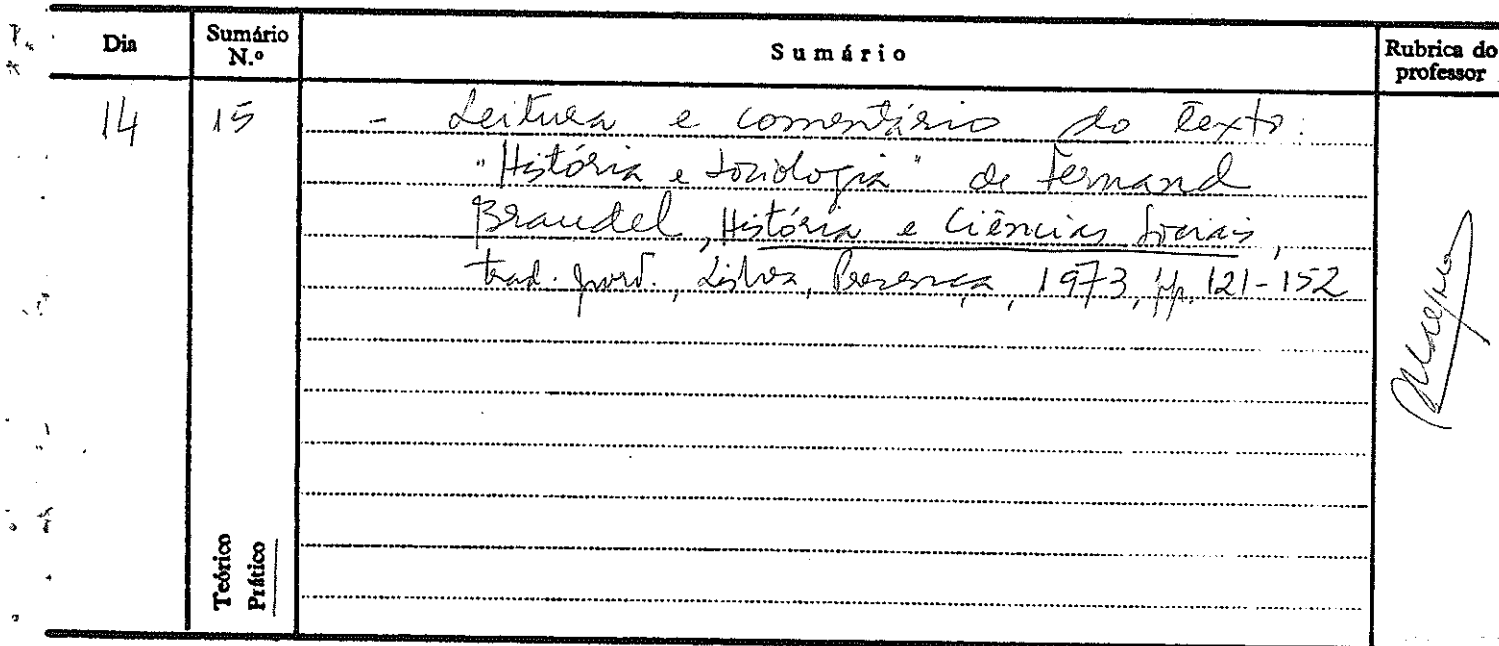 Dia
Sumário N.º
Sumário
Rubrica do professor
14
15
- Leitura e comentário do texto:
"História e Sociologia" de Fernand
Braudel, História e Ciências Sociais,
trad. port., Lisboa, Presença, 1973, pp. 121-152
Teórico
Prático